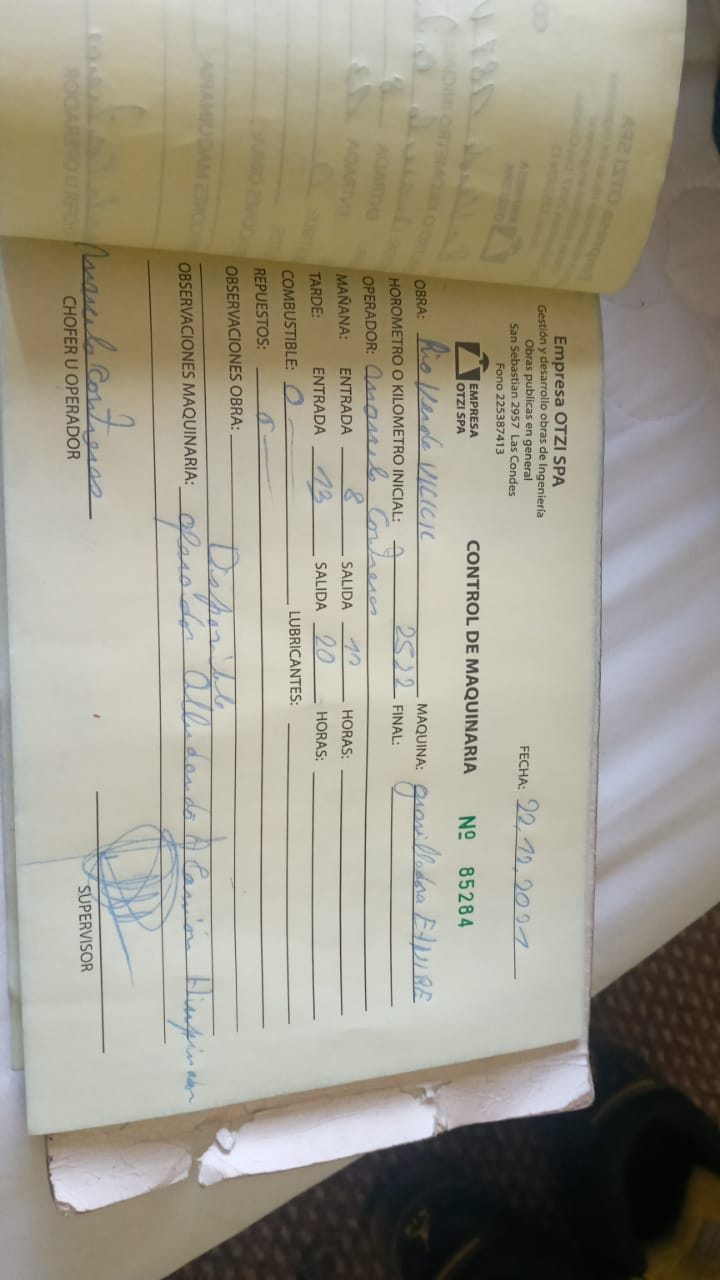 Empresa OTZI SPA
Gestión y desarrollo obras de Ingeniería
Obras publicas en general
San Sebastian 2957 Las Condes
Fono 225387413
FECHA: 22,12,2021
EMPRESA
OTZI SPA
CONTROL DE MAQUINARIA Nº 85284
OBRA: Rio Verde MAQUINA: gravilladora
HOROMETRO O KILOMETRO INICIAL: 2522 FINAL:
OPERADOR: Marcelo Contreras
MAÑANA: ENTRADA 8 SALIDA HORAS:
TARDE: ENTRADA 13 SALIDA 20 HORAS:
COMBUSTIBLE: 0 LUBRICANTES:
REPUESTOS: 0
OBSERVACIONES OBRA:
Disponible
OBSERVACIONES MAQUINARIA: operador Alludando A Camión
Marcelo Contreras
CHOFER U OPERADOR
SUPERVISOR